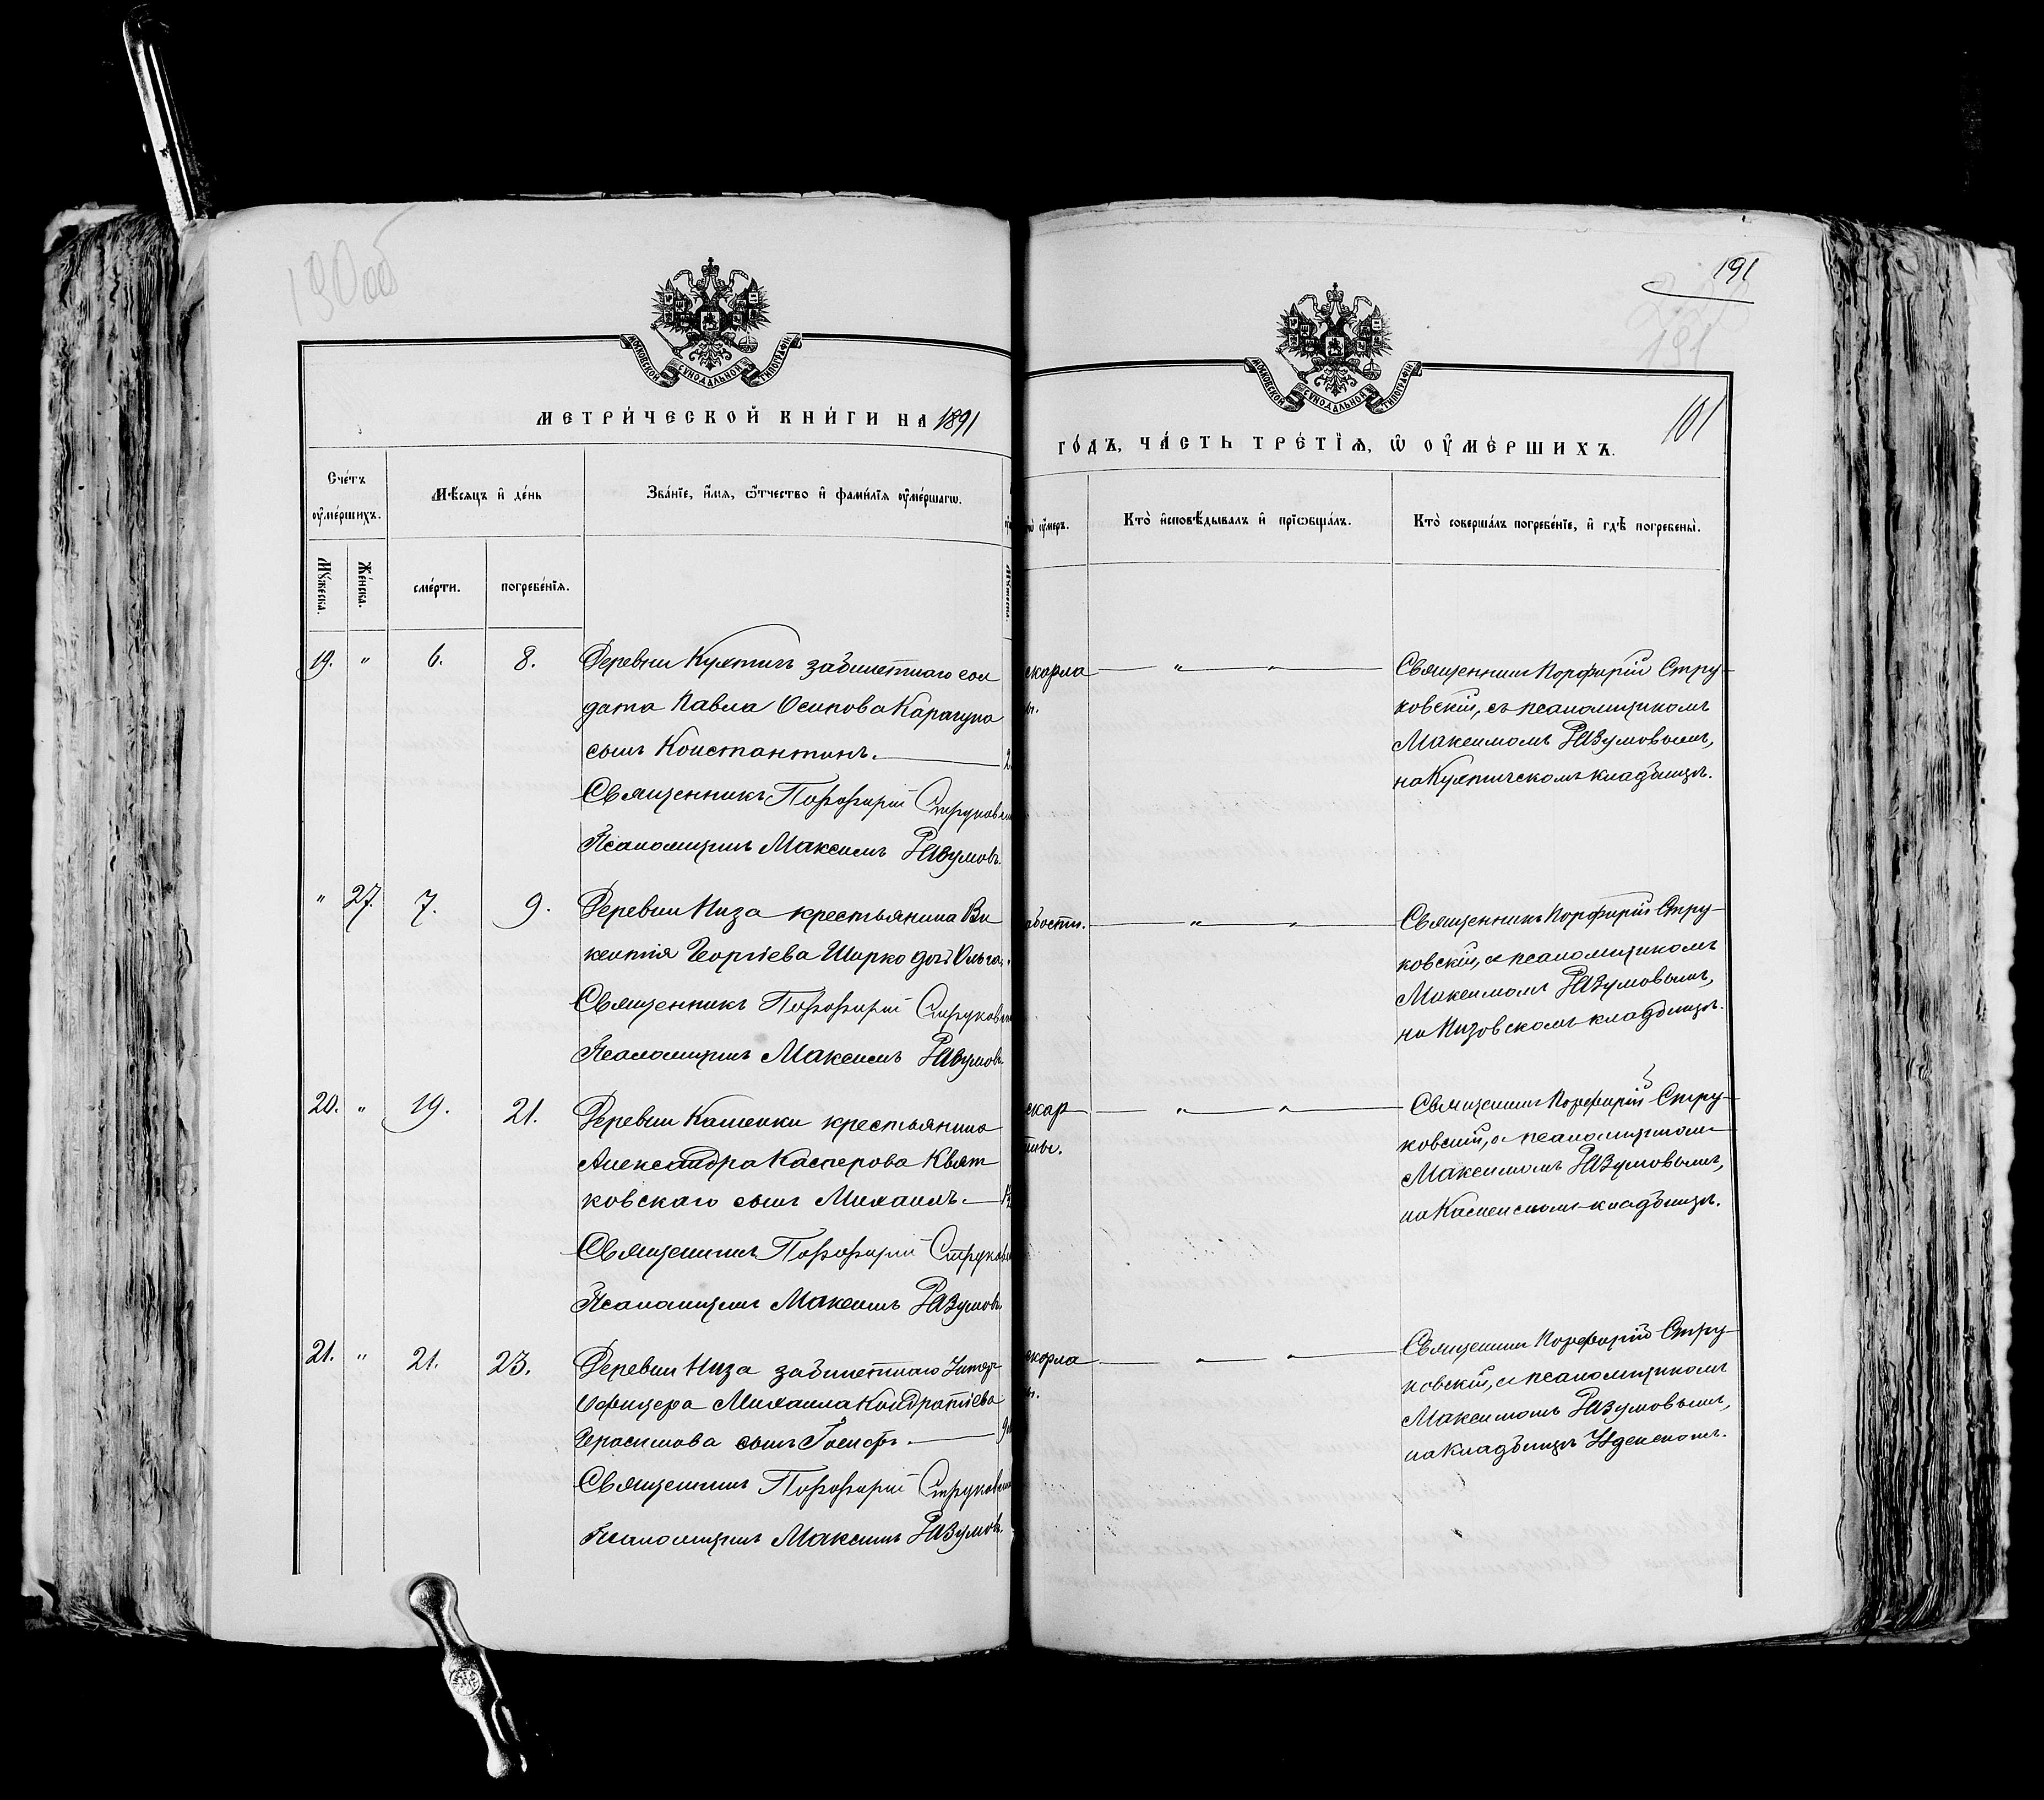 190об
МОСКОВСКОЙ СѴНОДАЛЬНОЙ ТИПОГРАФІИ
МЕТРИ́ЧЕСКОЙ КНИ́ГИ НА 1891
Сче́тъ ᲂу҆ме́ршихъ.
Мѣ́сяцъ и҆ де́нь
Зва́нїе, и҆́мя, ѻ҆́тчество и҆ фами́лїя ᲂу҆ме́ршагѡ.
Мꙋ́жеска.
Же́нска.
сме́рти.
погребе́нїя.
19. " 6. 8. Деревни Куятичъ забилетнаго сол
дата Павла Осипова Карагупа
сынъ Константинъ.
Священникъ Порфирій Струковск
Псаломщикъ Максимъ Разумовъ.
" 27. 7. 9. Деревни Низа крестьянина Ви
кентія Георгіева Ширко дочь Ольга.
Священникъ Порфирій Струковск
Псаломщикъ Максимъ Разумовъ
20. " 19. 21. Деревни Каменки крестьянина
Александра Касперова Квят
ковскаго сынъ Михаилъ.
Священникъ Порфирій Струков
Псаломщикъ Максимъ Разумовъ
21. " 21. 23. Деревни Низа забилетнаго Унтеръ
Офицера Михаила Кондратіева
Герасимова сынъ Іосифъ.
Священникъ Порфирій Струковск
Псаломщикъ Максимъ Разумовъ.
191
191
101
МОСКОВСКОЙ СѴНОДАЛЬНОЙ ТИПОГРАФІИ
ГО́ДЪ, ЧА́СТЬ ТРЕ́ТЇѦ, Ѡ҆ ОУ҆МЕ́РШИХЪ.
ᲂу҆́меръ.
Кто̀ и҆сповѣ́дывалъ и҆ прїѡбща́лъ.
Кто̀ соверша́лъ погребе́нїе, и҆ гдѣ̀ погребены̀.
скарла " " Священникъ Порфирій Стру-
ы. ковскій, съ псаломщикомъ
Максимомъ Разумовымъ,
на Куятичскомъ кладбищѣ.
абости. " " Священникъ Порфирій Стру-
ковскій, съ псаломщикомъ
Максимомъ Разумовымъ,
на Низовскомъ кладбищѣ.
скар " " Священникъ Порфирій Стру-
тины. ковскій, съ псаломщикомъ
Максимомъ Разумовымъ,
на Каменскомъ кладбищѣ.
скарла " " Священникъ Порфирій Стру-
ы. ковскій, съ псаломщикомъ
Максимомъ Разумовымъ,
на кладбищѣ